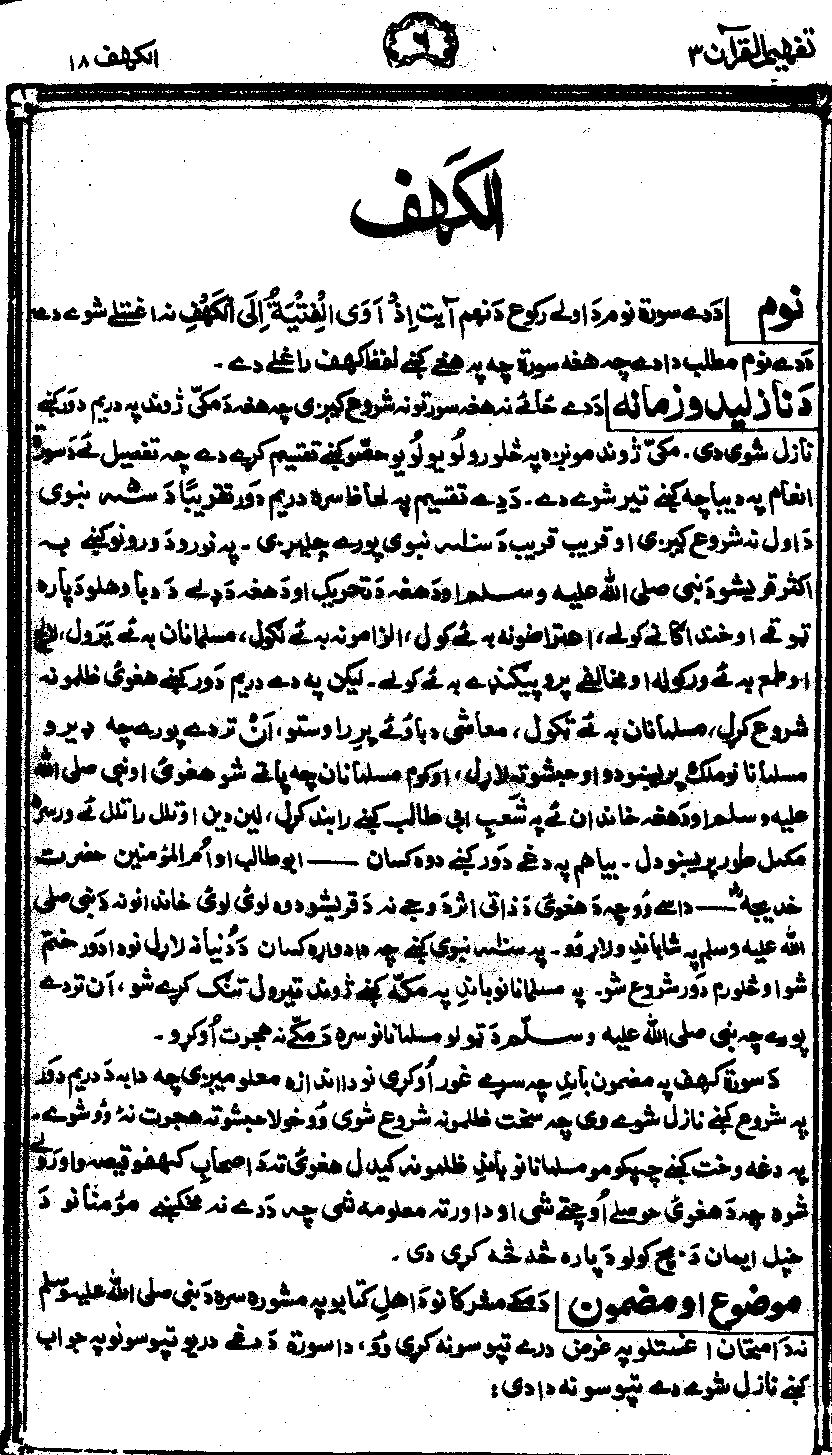 تفهیم القرآن ۳
۶
الکهف ۱۸
الکهف
نوم
دَدے سورة نوم دَ اولے رکوع دَ نهم آیت اِذْ اَوَی الْفِتْیَةُ اِلَی الْکَهْفِ نه اغستلے شوے دے
دَدے نوم مطلب دا دے چه هغه سورة چه په هغے کښے لفظ کهف راغلے دے ۔
دَ نازلیدو زمانه
دَدے ځائے نه هغه سورتونه شروع کیږی چه هغه دَ مکیّ ژوند په دریم دَور کښے
نازل شوی دی ۔ مکیّ ژوند مونږه په څلورو لُویو لُویو حصّو کښے تقسیم کړے دے چه تفصیل ئے دَ سورة
انعام په دیباچه کښے تیر شوے دے ۔ دَدے تقسیم په لحاظ سره دریم دَور تقریبًا دَ سـ۵ـنه نبوی
دَ اول نه شروع کیږی او قریب قریب دَ سنـ۱۰ـه نبوی پورے چلیږی ۔ په نورو دَورونو کښے به
اکثر قریشو دَ نبی صلی الله علیه وسلم او دَ هغه دَ تحریک او دَ هغه دَ ډلے دَ دباؤ هلو دَپاره
ټوقے او خنداګانے کولے، اعتراضونه به ئے کول، الزامونه به ئے لګول، مسلمانان به ئے یَرول، لالچ
او طمع به ئے ورکوله او مخالفے پروپیګنډے به ئے کولے ۔ لیکن په دے دریم دَور کښے هغوئ ظلمونه
شروع کړل، مسلمانان به ئے ټکول، معاشی دباؤ ئے پرِ راوستو، اَن تر دے پورے چه ډیرو
مسلمانانو ملک پریښودو او حبشو ته لاړل، او کوم مسلمانان چه پاتے شو هغوئ او نبی صلی الله
علیه وسلم او دَ هغه خاندان ئے په شَعبِ ابی طالب کښے را بند کړل، لین دین او تلل راتلل ئے ورسره
مکمل طور پریښودل ۔ بیا هم په دغے دَور کښے دوه کسان —— ابو طالب او اُم المؤمنین حضرت
خدیجهؓ —— داسے وُو چه دَ هغوئ دَ ذاتی اثر دَ وجے نه دَ قریشو دوه لوئ لوئ خاندانونه دَ نبی صلی
الله علیه وسلم په شا باندِ ولاړ وُو ۔ په سنـ۱۰ـه نبوی کښے چه دا دواړه کسان دَ دُنیا نه لاړل نو دا دَور ختم
شو او څلورم دَور شروع شو ۔ په مسلمانانو باندِ په مکّه کښے ژوند تیرول تنګ کړے شو، اَن تر دے
پورے چه نبی صلی الله علیه وسلّم دَ ټولو مسلمانانو سره دَ مکّے نه هجرت اُوکړو ۔
دَ سورة کهف په مضمون باندِ چه سړے غور اُوکړی نو دا اندازه معلومیږی چه دا به دَ دریم دَور
په شروع کښے نازل شوے وی چه سخت ظلمونه شروع شوی وُو خو لا حبشو ته هجرت نۀ وُو شوے ۔
په دغه وخت کښے چه په کومو مسلمانانو باندِ ظلمونه کیدل هغوئ ته دَ اصحابِ کهف قیصه واورَولے
شوه چه دَ هغوئ حوصلے اُوچتے شی او دا ورته معلومه شی چه دَدے نه مخکښے مؤمنانو دَ
خپل ایمان دَ بچ کولو دَپاره څه څه کړی دی ۔
موضوع او مضمون
دَ مکے مشرکانو دَ اهلِ کتابو په مشوره سره دَ نبی صلی الله علیه وسلم
نه دَ امتحان اغستلو په غرض درے تپوسونه کړی وُو، دا سورة دَ دغے دریو تپوسونو په جواب
کښے نازل شوے دے تپوسونه دا دی :